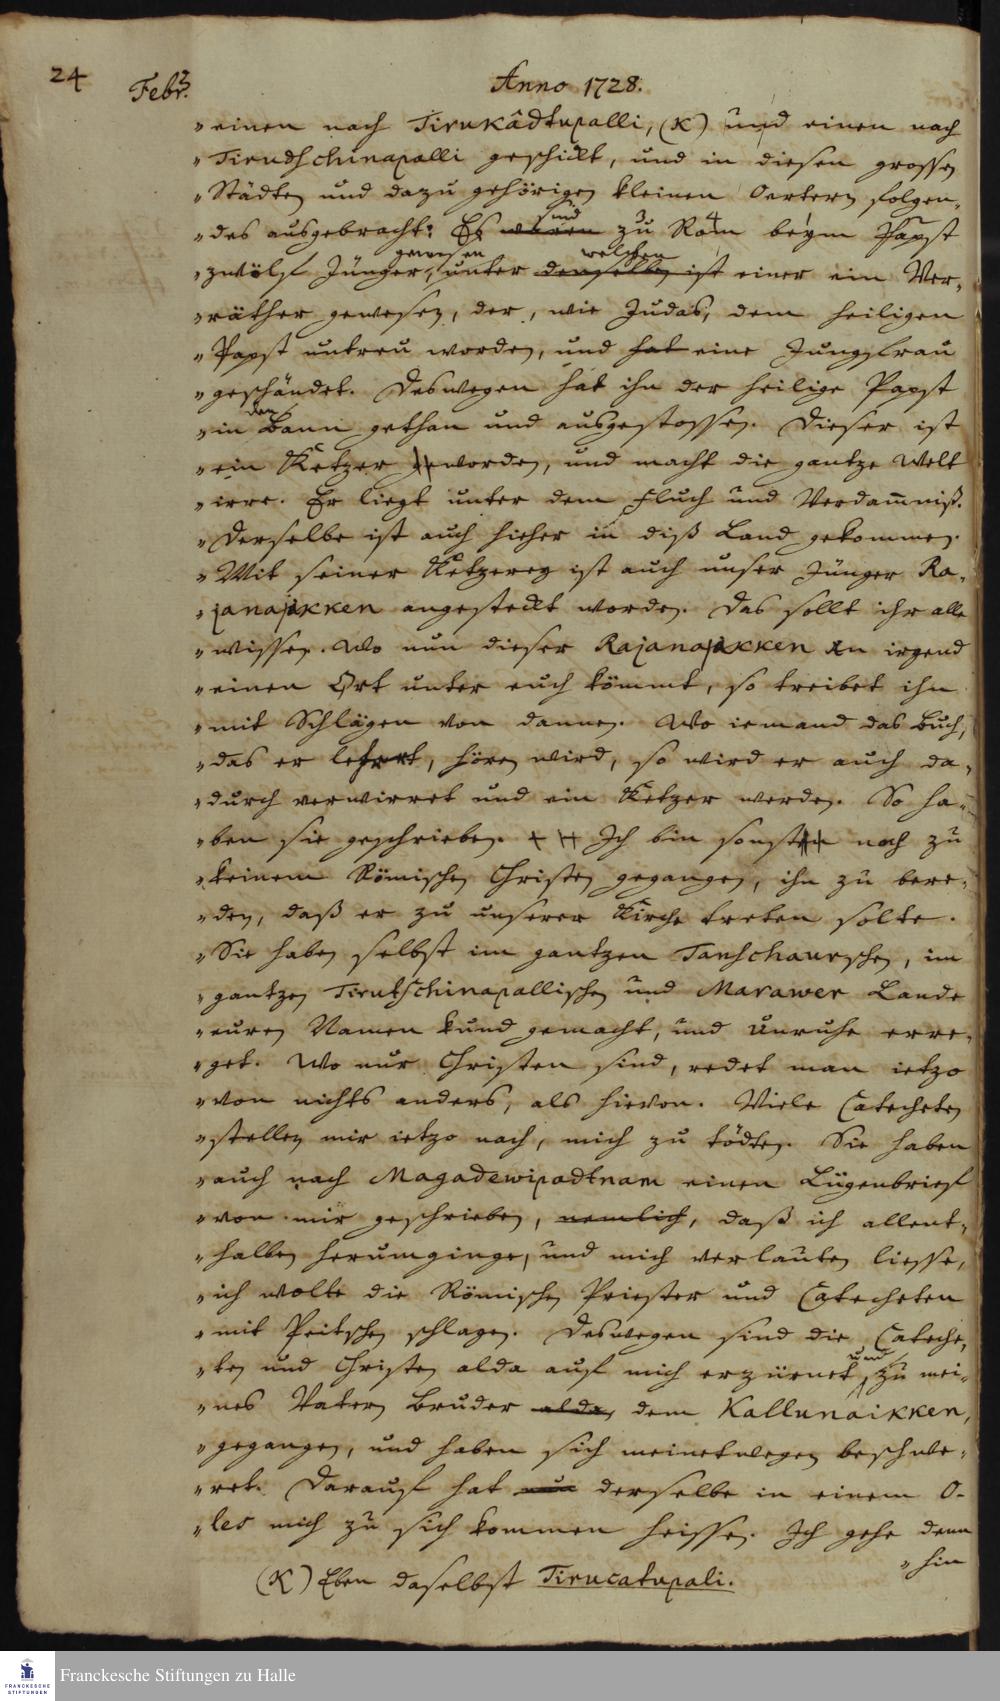 24
Febr.
Anno 1728.
„einen nach Tirukâdtupalli, (K) und einen nach
„Tirudschinapalli geschickt, und in diesen grossen
„Städten und dazu gehörigen kleinen Oertern folgen„
„des ausgebracht: Es waren sind zu Rom beym Papst
„zwölf Jünger gewesen, unter denselben welchen ist einer ein Ver„
„räther gewesen, der, wie Judas, dem heiligen
„Papst untreu worden, und hat eine Jungfrau
„geschändet. Deswegen hat ihn der heilige Papst
„in den Bann gethan und ausgestossen. Dieser ist
„ein Ketzer worden, und macht die gantze Welt
„irre. Er liegt unter dem Fluch und Verdam̅niß.
„Derselbe ist auch hieher in diß Land gekommen.
„Mit seiner Ketzerey ist auch unser Jünger Ra„
„janajakken angesteckt worden. Das sollt ihr alle
„wissen. Wo nun dieser Rajanajakken an irgend
„einen Ort unter euch kömmt, so treibet ihn
„mit Schlägen von dannen. Wo iemand das Buch,
„das er lehrt, hören wird, so wird er auch da„
„durch verwirret und ein Ketzer werden. So ha„
„ben sie geschrieben. Ich bin sonsten noch zu
„keinem Römischen Christen gegangen, ihn zu bere„
„den, daß er zu unserer Kirche treten solte.
„Sie haben selbst im gantzen Tanschaurschen, im
„gantzen Tirutschinapallischen und Marawer Lande
„euren Namen kund gemacht, und Unruhe erre„
„get. Wo nur Christen sind, redet man ietzo
„von nichts anders, als hievon. Viele Catecheten
„stellen mir ietzo nach, mich zu tödten. Sie haben
„auch nach Magadewipadtnam einen Lügenbrief
„von mir geschrieben, nemlich, daß ich allent„
„halben herumginge, und mich verlauten liesse,
„ich wolte die Römischen Priester und Catecheten
„mit Peitschen schlagen. Deswegen sind die Cateche„
„ten und Christen alda auf mich erzürnet, und zu mei„
„nes Vatern Bruder alda, dem Kallunaikken,
„gegangen, und haben sich meinetwegen beschwe„
„ret. Darauf hat nun derselbe in einem O-
„les mich zu sich kommen heissen. Ich gehe denn
„hin
(K) Eben daselbst Tirucatupali.
Franckesche Stiftungen zu Halle
FRANCKESCHE
STIFTUNGEN